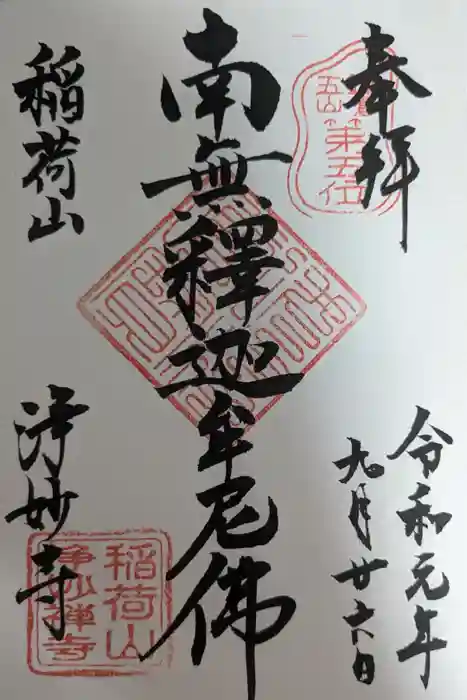 奉拝
令和元年
九月廿六日
五山
第五位
南無釋迦牟尼佛
稲荷山
浄妙寺
稲荷山
浄妙禅寺